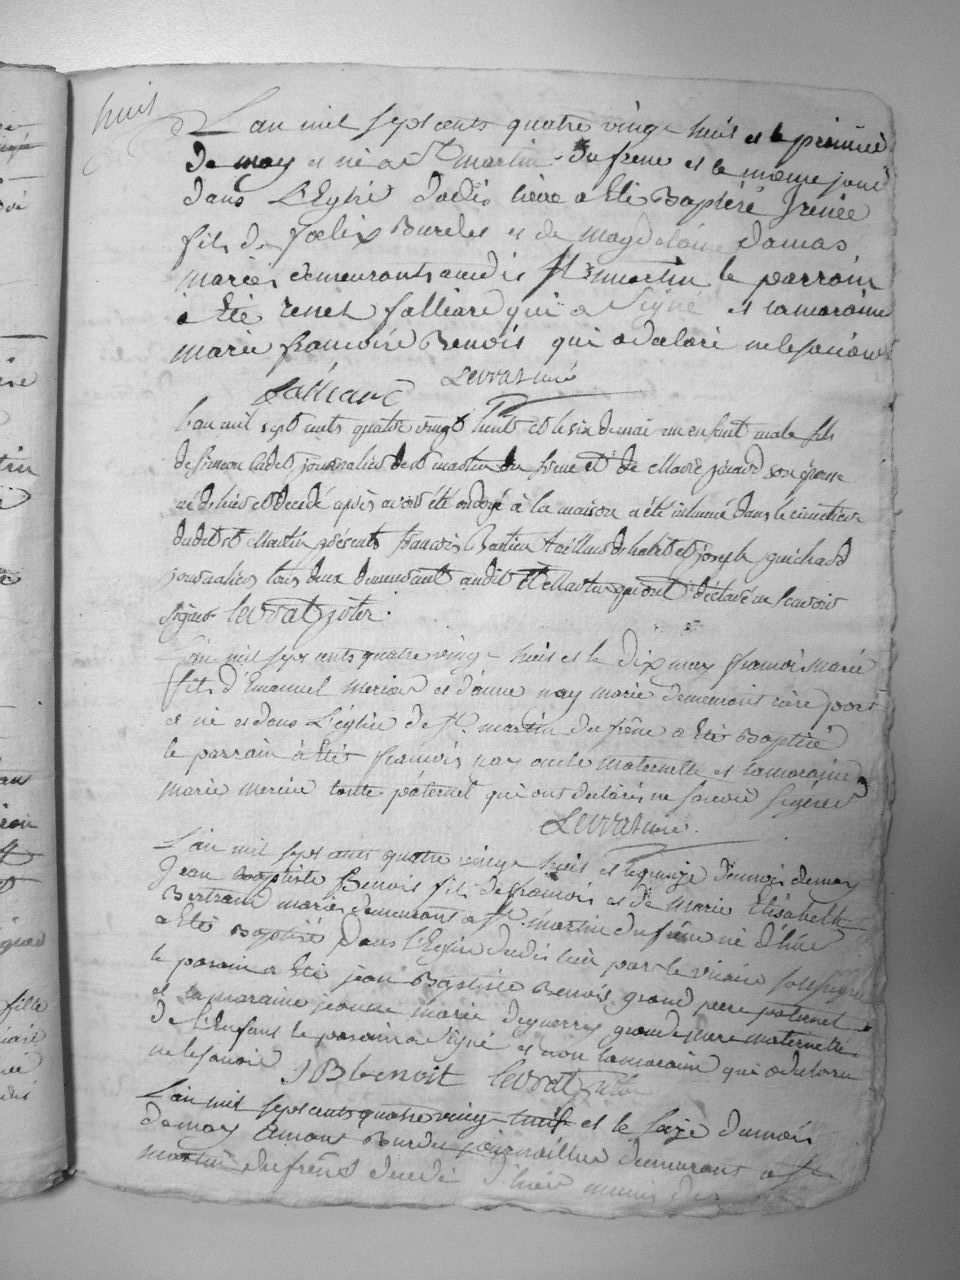 huit
L'an mil sept cents quatre vingt huit et le premier
de may et né a St martin du frene et le meme jour
dans L'Eglise dudit lieu a Eté Baptisé Irenée
fils de foelix Burdet et de magdelaine damas
mariés demeurants audit St martin le parrain
a Eté renet falliard qui a Signé et la maraine
marie francoise Benois qui a declaré ne le savoir
falliard Levrat curé
L'an mil sept cents quatre vingt huit et le six de mai un enfant male fils
de simeon cadet journalier de St martin du frene et de Marie girard son épouse
né de hier et decedé après avoir été ondoyé à la maison a été inhumé dans le cimetiere
dudit St Martin présents francois Bastien tailleur d'habit et joseph guichard
journaliers tous deux demeurant audit St Martin qui ont déclaré ne scavoir
signer levrat
L'an mil sept cents quatre vingt huit et le dix may francoi marie
fils d'Emanuel mercier et d'anne nay marié demeurant
et né et dans L'église de St. martin du frêne a Eté Baptisé
le parrain à Eté francois nay oncle maternelle et la maraine
marie mercier tante páternel qui ont declarés ne savoir signer
Levrat curé.
L'an mil sept cents quatre vingt huit et le quinze du mois de may
Jean baptiste Benois fils de francois et de Marie Elisabeth
Bertrand mariés demeurant a St. martin du frene né d'hier
a Eté Baptisé dans L'Eglise dudit lieu par le vicaire soussigné
le parain a Eté jean Baptiste Benois grand pere paternel
et la maraine jeanne marie grande mere maternelle
de L'Enfant le parain a signé et non la maraine qui a declaré
ne le savoir JB benoit levrat
L'an mil sept cents quatre vingt huit et le seize du mois
de may demeurant a St
martin du frêne decedé d'hier munis des